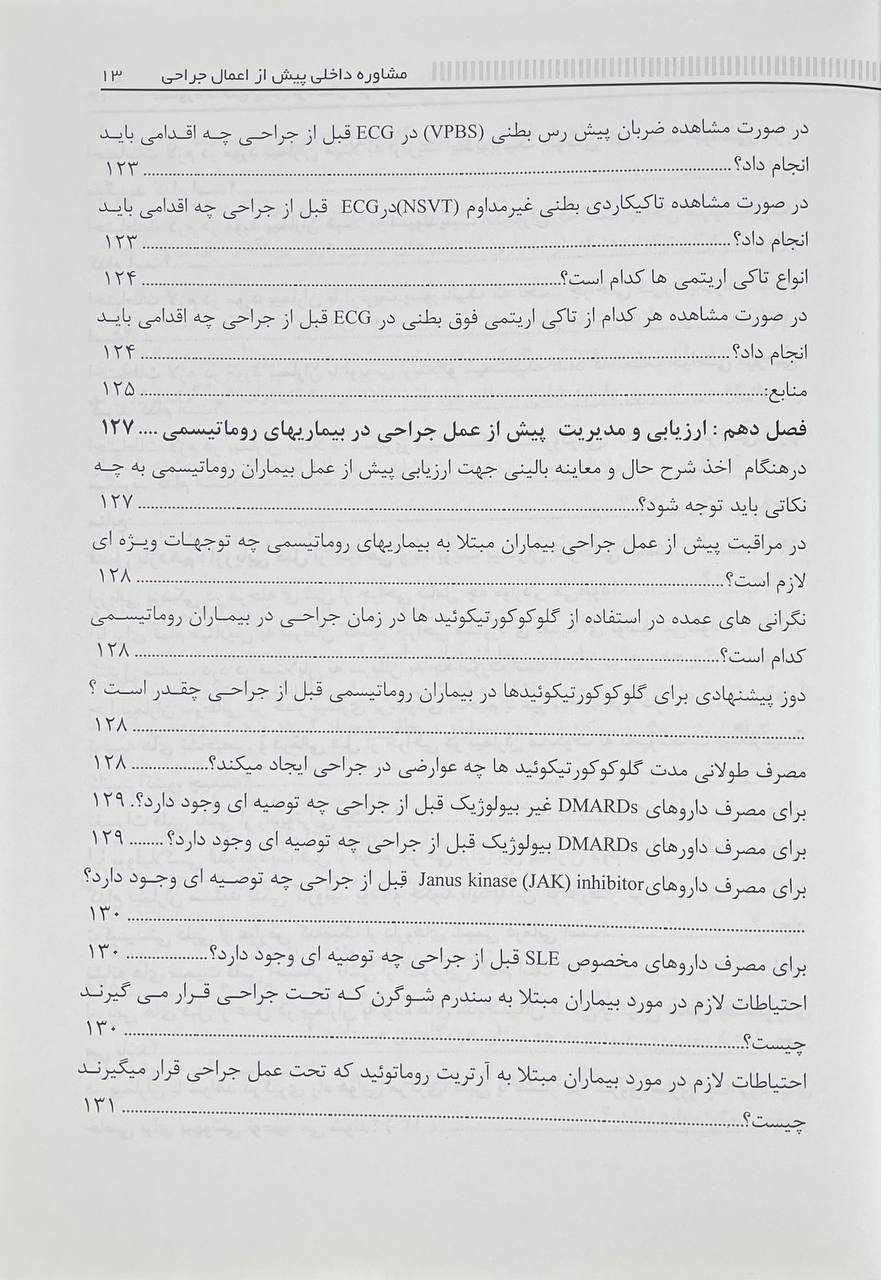 مشاوره داخلی پیش از اعمال جراحی ۱۳
در صورت مشاهده ضربان پیش رس بطنی (VPBS) در ECG قبل از جراحی چه اقدامی باید
انجام داد؟ ۱۲۳
در صورت مشاهده تاکیکاردی بطنی غیرمداوم (NSVT)درECG قبل از جراحی چه اقدامی باید
انجام داد؟ ۱۲۳
انواع تاکی اریتمی ها کدام است؟ ۱۲۴
در صورت مشاهده هر کدام از تاکی اریتمی فوق بطنی در ECG قبل از جراحی چه اقدامی باید
انجام داد؟ ۱۲۴
منابع: ۱۲۵
فصل دهم : ارزیابی و مدیریت پیش از عمل جراحی در بیماریهای روماتیسمی .... ۱۲۷
درهنگام اخذ شرح حال و معاینه بالینی جهت ارزیابی پیش از عمل بیماران روماتیسمی به چه
نکاتی باید توجه شود؟ ۱۲۷
در مراقبت پیش از عمل جراحی بیماران مبتلا به بیماریهای روماتیسمی چه توجهات ویژه ای
لازم است؟ ۱۲۸
نگرانی های عمده در استفاده از گلوکوکورتیکوئید ها در زمان جراحی در بیماران روماتیسمی
کدام است؟ ۱۲۸
دوز پیشنهادی برای گلوکوکورتیکوئیدها در بیماران روماتیسمی قبل از جراحی چقدر است ؟
۱۲۸
مصرف طولانی مدت گلوکوکورتیکوئید ها چه عوارضی در جراحی ایجاد میکند؟ ۱۲۸
برای مصرف داروهای DMARDs غیر بیولوژیک قبل از جراحی چه توصیه ای وجود دارد؟. ۱۲۹
برای مصرف داورهای DMARDs بیولوژیک قبل از جراحی چه توصیه ای وجود دارد؟ ۱۲۹
برای مصرف داروهایJanus kinase (JAK) inhibitor قبل از جراحی چه توصیه ای وجود دارد؟
۱۳۰
برای مصرف داروهای مخصوص SLE قبل از جراحی چه توصیه ای وجود دارد؟ ۱۳۰
احتیاطات لازم در مورد بیماران مبتلا به سندرم شوگرن که تحت جراحی قرار می گیرند
چیست؟ ۱۳۰
احتیاطات لازم در مورد بیماران مبتلا به آرتریت روماتوئید که تحت عمل جراحی قرار میگیرند
چیست؟ ۱۳۱